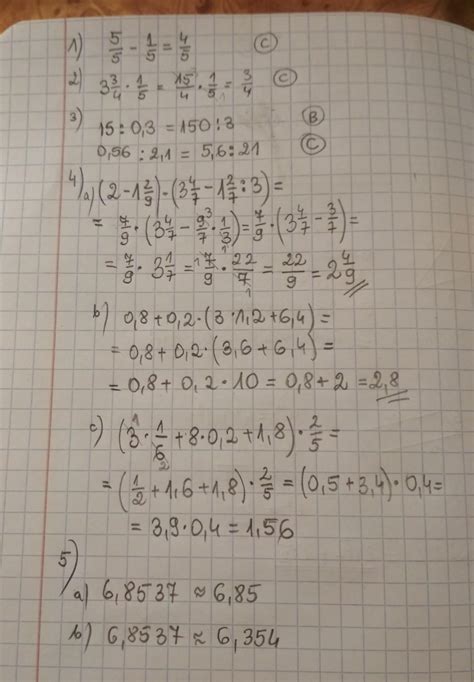 1) 5/5 - 1/5 = 4/5 (C)
2) 3 3/4 · 1/5 = 15/4 · 1/5 = 3/4 (C)
3) 15 : 0,3 = 150 : 3 (B)
0,56 : 2,1 = 5,6 : 21 (C)
4) a) (2 - 1 2/9) · (3 4/7 - 1 2/7 : 3) =
= 7/9 · (3 4/7 - 9/7 · 1/3) = 7/9 · (3 4/7 - 3/7) =
= 7/9 · 3 1/7 = 7/9 · 22/7 = 22/9 = 2 4/9
b) 0,8 + 0,2 · (3 · 1,2 + 6,4) =
= 0,8 + 0,2 · (3,6 + 6,4) =
= 0,8 + 0,2 · 10 = 0,8 + 2 = 2,8
c) (3 · 1/6 + 8 · 0,2 + 1,8) · 2/5 =
= (1/2 + 1,6 + 1,8) · 2/5 = (0,5 + 3,4) · 0,4 =
= 3,9 · 0,4 = 1,56
5)
a) 6,8537 ≈ 6,85
b) 6,8537 ≈ 6,354